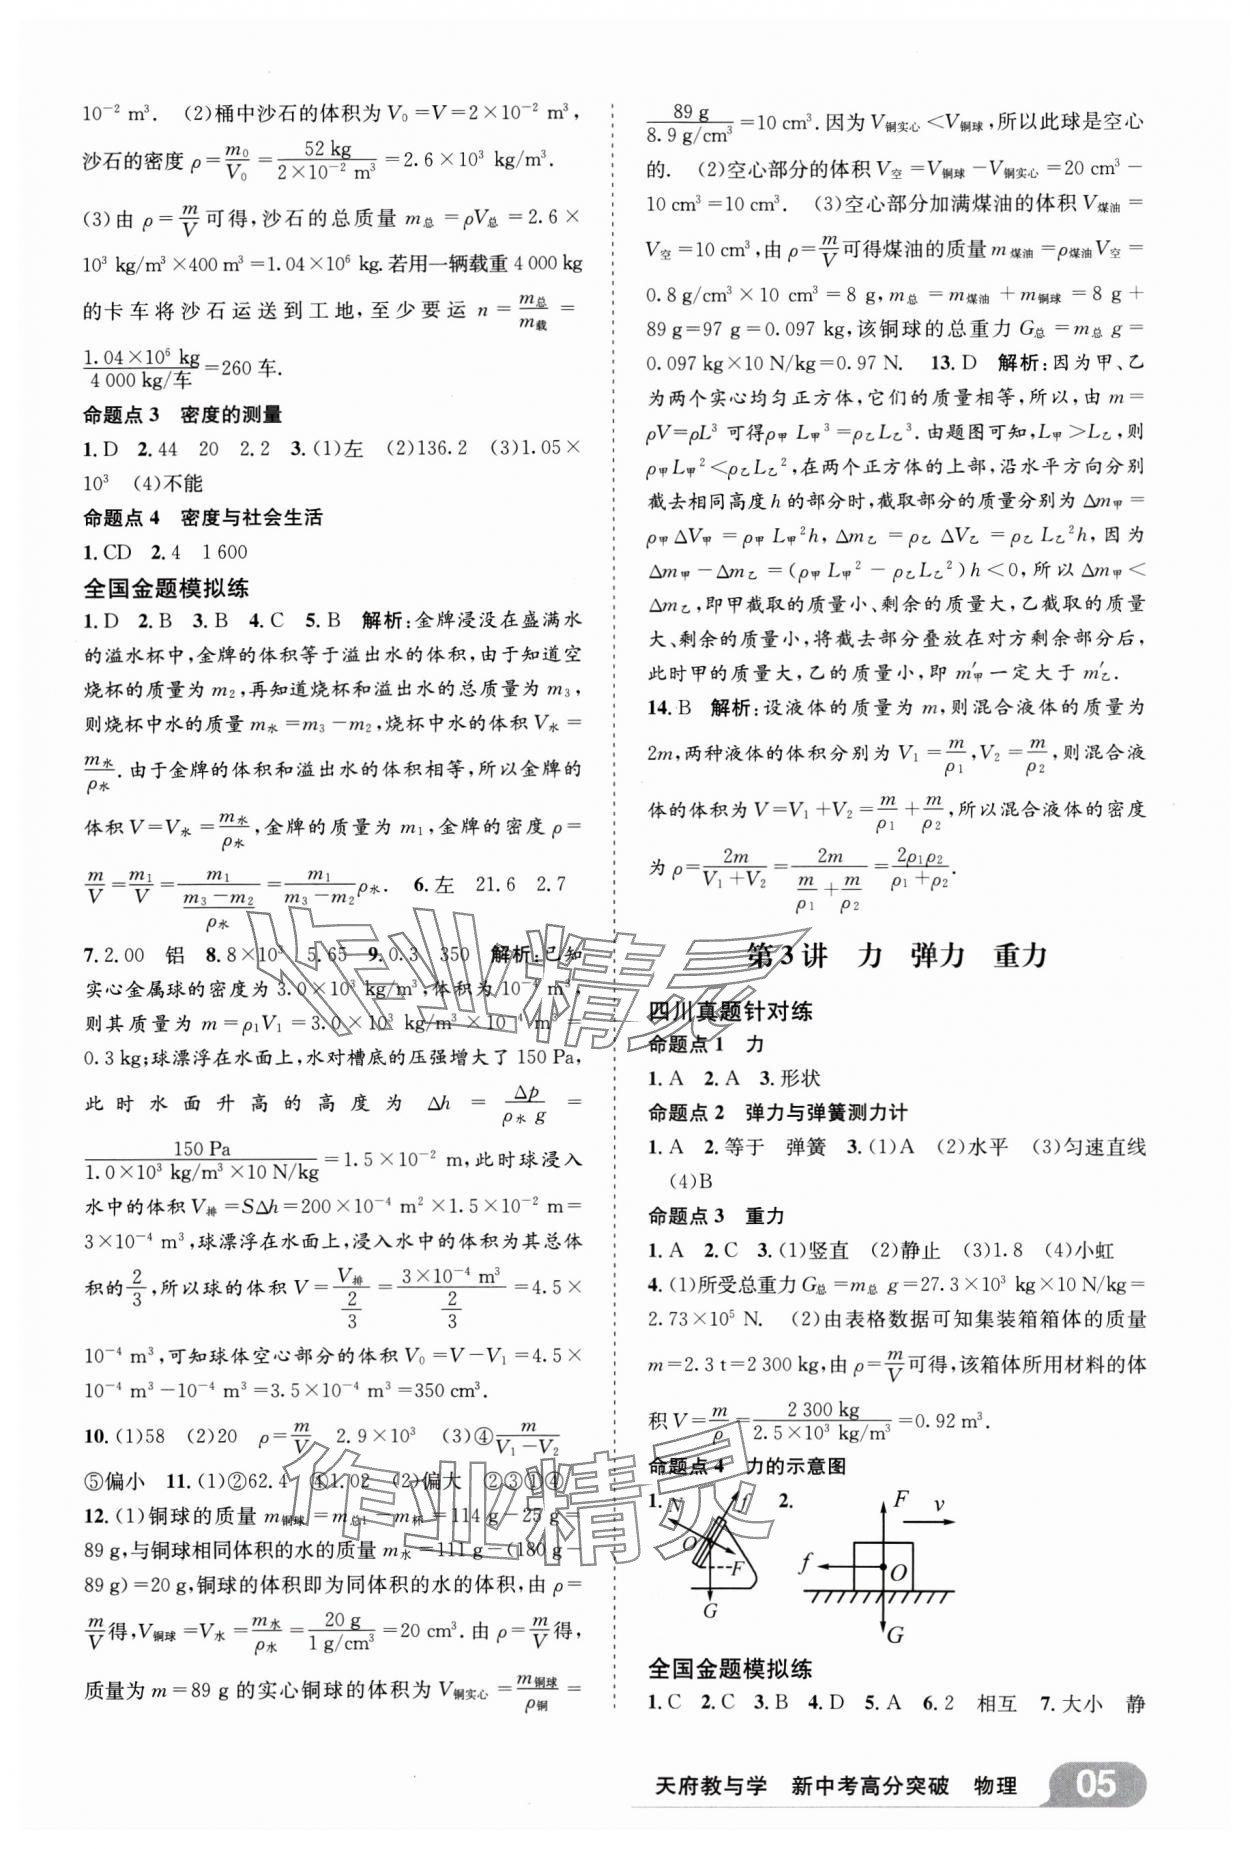 10⁻² m³. (2)桶中沙石的体积为 V₀=V=2×10⁻² m³,
沙石的密度 ρ=m₀/V₀=52 kg/(2×10⁻² m³)=2.6×10³ kg/m³.
(3)由 ρ=m/V可得,沙石的总质量 m总=ρV总=2.6×
10³ kg/m³×400 m³=1.04×10⁶ kg.若用一辆载重 4 000 kg
的卡车将沙石运送到工地,至少要运 n=m总/m载=
1.04×10⁶ kg/(4 000 kg/车)=260 车.
命题点3 密度的测量
1.D 2.44 20 2.2 3.(1)左 (2)136.2 (3)1.05×
10³ (4)不能
命题点4 密度与社会生活
1.CD 2.4 1 600
全国金题模拟练
1.D 2.B 3.B 4.C 5.B 解析:金牌浸没在盛满水
的溢水杯中,金牌的体积等于溢出水的体积,由于知道空
烧杯的质量为 m₂,再知道烧杯和溢出水的总质量为 m₃,
则烧杯中水的质量 m水=m₃-m₂,烧杯中水的体积 V水=
m水/ρ水.由于金牌的体积和溢出水的体积相等,所以金牌的
体积 V=V水=m水/ρ水,金牌的质量为 m₁,金牌的密度 ρ=
m/V=m₁/V=m₁/((m₃-m₂)/ρ水)=m₁/(m₃-m₂)ρ水. 6.左 21.6 2.7
7.2.00 铝 8.8×10³ 5.65 9.0.3 350 解析:已知
实心金属球的密度为 3.0×10³ kg/m³,体积为 10⁻⁴ m³,
则其质量为 m=ρ₁V₁=3.0×10³ kg/m³×10⁻⁴ m³=
0.3 kg;球漂浮在水面上,水对槽底的压强增大了 150 Pa,
此时水面升高的高度为 Δh=Δp/(ρ水 g)=
150 Pa/(1.0×10³ kg/m³×10 N/kg)=1.5×10⁻² m,此时球浸入
水中的体积 V排=SΔh=200×10⁻⁴ m²×1.5×10⁻² m=
3×10⁻⁴ m³,球漂浮在水面上,浸入水中的体积为其总体
积的2/3,所以球的体积 V=V排/(2/3)=3×10⁻⁴ m³/(2/3)=4.5×
10⁻⁴ m³,可知球体空心部分的体积 V₀=V-V₁=4.5×
10⁻⁴ m³-10⁻⁴ m³=3.5×10⁻⁴ m³=350 cm³.
10.(1)58 (2)20 ρ=m/V 2.9×10³ (3)④m/(V₁-V₂)
⑤偏小 11.(1)②62.4 ④1.02 (2)偏大 ②③①④
12.(1)铜球的质量 m铜球=m总1-m杯=114 g-25 g=
89 g,与铜球相同体积的水的质量 m水=111 g-(180 g-
89 g)=20 g,铜球的体积即为同体积的水的体积,由 ρ=
m/V得,V铜球=V水=m水/ρ水=20 g/(1 g/cm³)=20 cm³.由 ρ=m/V得,
质量为 m=89 g 的实心铜球的体积为 V铜实心=m铜球/ρ铜=
89 g/(8.9 g/cm³)=10 cm³.因为 V铜实心<V铜球,所以此球是空心
的. (2)空心部分的体积 V空=V铜球-V铜实心=20 cm³-
10 cm³=10 cm³. (3)空心部分加满煤油的体积 V煤油=
V空=10 cm³,由 ρ=m/V可得煤油的质量 m煤油=ρ煤油V空=
0.8 g/cm³×10 cm³=8 g,m总=m煤油+m铜球=8 g+
89 g=97 g=0.097 kg,该铜球的总重力 G总=m总 g=
0.097 kg×10 N/kg=0.97 N. 13.D 解析:因为甲、乙
为两个实心均匀正方体,它们的质量相等,所以,由 m=
ρV=ρL³ 可得ρ甲 L甲³=ρ乙L乙³.由题图可知,L甲>L乙,则
ρ甲L甲²<ρ乙L乙²,在两个正方体的上部,沿水平方向分别
截去相同高度 h 的部分时,截取部分的质量分别为 Δm甲=
ρ甲ΔV甲=ρ甲 L甲²h,Δm乙=ρ乙 ΔV乙=ρ乙 L乙²h,因为
Δm甲-Δm乙=(ρ甲 L甲²-ρ乙L乙²)h<0,所以 Δm甲<
Δm乙,即甲截取的质量小、剩余的质量大,乙截取的质量
大、剩余的质量小,将截去部分叠放在对方剩余部分后,
此时甲的质量大,乙的质量小,即 m′甲一定大于 m′乙.
14.B 解析:设液体的质量为 m,则混合液体的质量为
2m,两种液体的体积分别为 V₁=m/ρ₁,V₂=m/ρ₂,则混合液
体的体积为 V=V₁+V₂=m/ρ₁+m/ρ₂,所以混合液体的密度
为 ρ=2m/(V₁+V₂)=2m/(m/ρ₁+m/ρ₂)=2ρ₁ρ₂/(ρ₁+ρ₂).
第3讲 力 弹力 重力
四川真题针对练
命题点1 力
1.A 2.A 3.形状
命题点2 弹力与弹簧测力计
1.A 2.等于 弹簧 3.(1)A (2)水平 (3)匀速直线
(4)B
命题点3 重力
1.A 2.C 3.(1)竖直 (2)静止 (3)1.8 (4)小虹
4.(1)所受总重力 G总=m总 g=27.3×10³ kg×10 N/kg=
2.73×10⁵ N. (2)由表格数据可知集装箱箱体的质量
m=2.3 t=2 300 kg,由 ρ=m/V可得,该箱体所用材料的体
积 V=m/ρ=2 300 kg/(2.5×10³ kg/m³)=0.92 m³.
命题点4 力的示意图
1. N f O F G 2. F v f O G
全国金题模拟练
1.C 2.C 3.B 4.D 5.A 6.2 相互 7.大小 静
天府教与学 新中考高分突破 物理 05
作业精灵
作业精灵